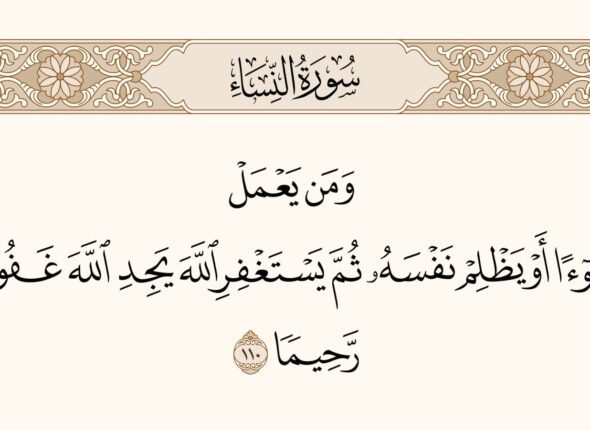 سُورَةُ النِّسَاءِ
وَمَن يَعْمَلْ
وٓءًا أَوْ يَظْلِمْ نَفْسَهُۥ ثُمَّ يَسْتَغْفِرِ ٱللَّهَ يَجِدِ ٱللَّهَ غَفُو
رَّحِيمًا ١١٠